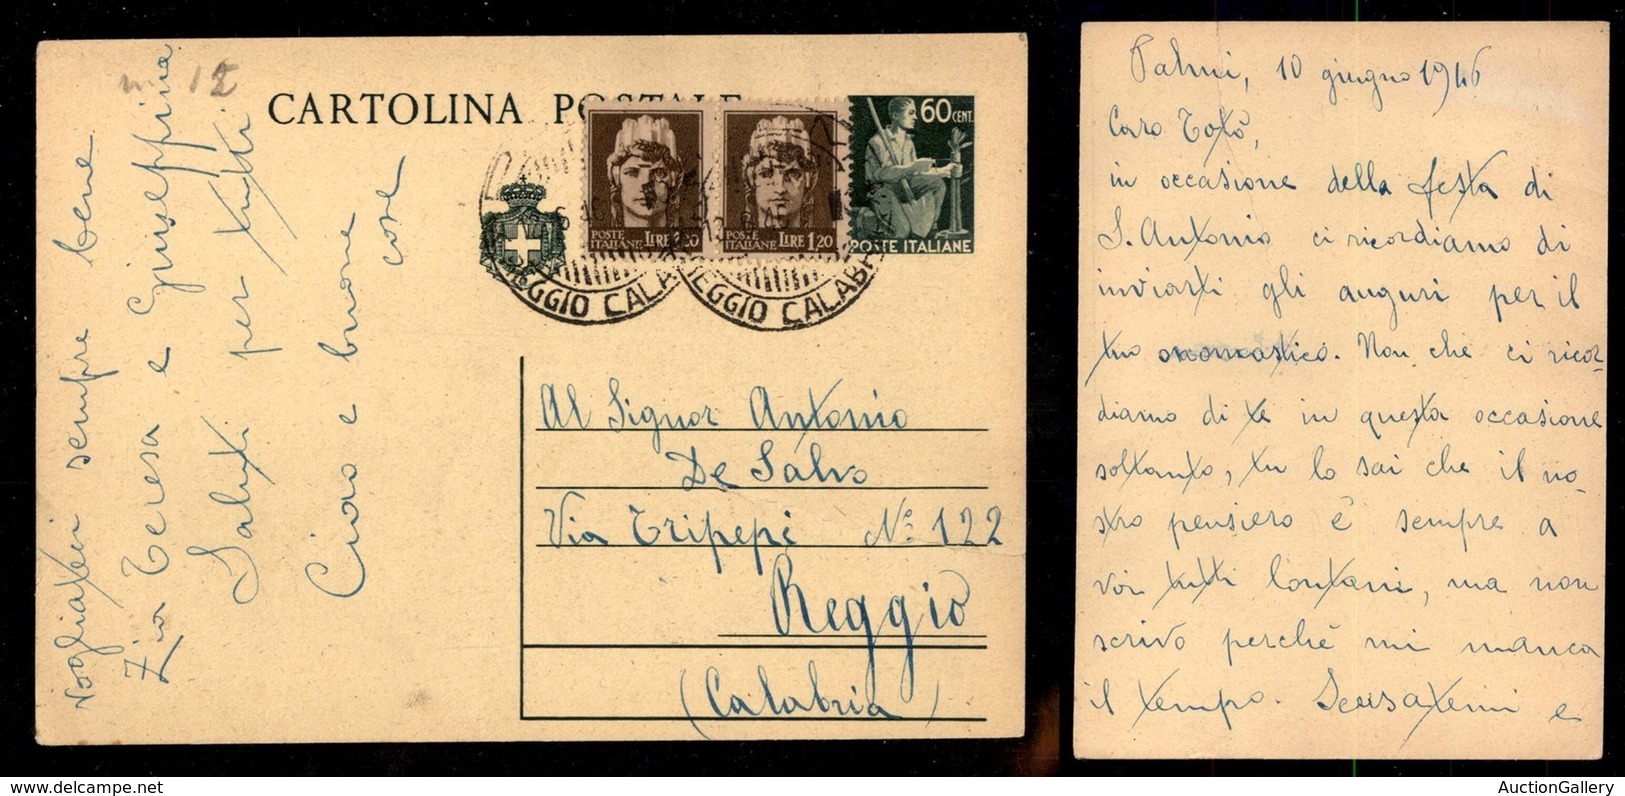 CARTOLINA POSTALE
n. 12
60 CENT.
POSTE ITALIANE
POSTE ITALIANE LIRE 1,20
POSTE ITALIANE LIRE 1,20
REGGIO CALAB
REGGIO CALAB
Al Signor Antonio
De Salvo
Via Tripepi N° 122
Reggio
(Calabria)
vogliatevi sempre bene
Zia Teresa e Giuseppina
Saluti per tutti
Ciao e buone
cose
Palmi, 10 giugno 1946
Caro Totò,
in occasione della festa di
S. Antonio ci ricordiamo di
inviarti gli auguri per il
tuo onomastico. Non che ci ricor-
diamo di te in questa occasione
soltanto, tu lo sai che il no-
stro pensiero è sempre a
voi tutti lontani, ma non
scrivo perché mi manca
il tempo. Scusatemi e
AuctionGallery